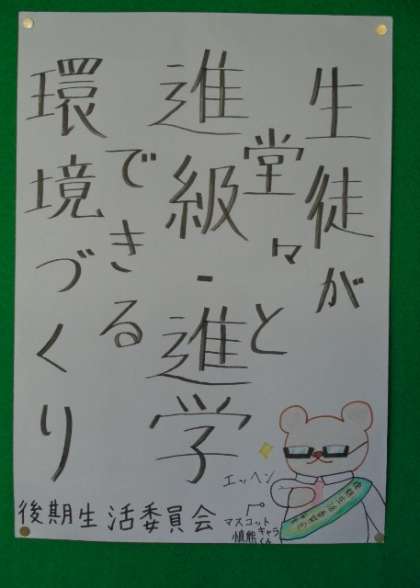 生徒が
堂々と
進級・進学
できる
環境づくり
後期生活委員会
エッヘン
マスコットキャラ
慎熊くん